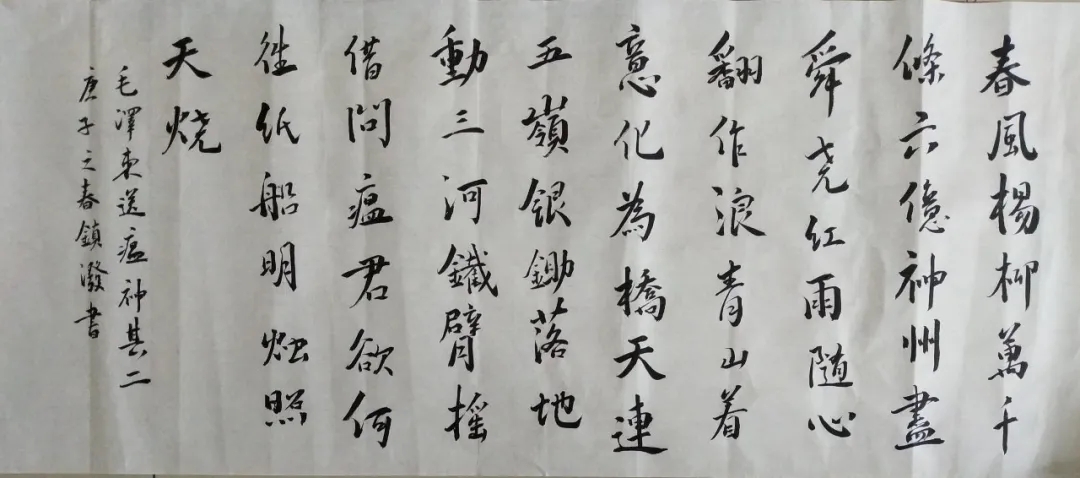 春風楊柳萬千
條六億神州盡
舜尧红雨隨心
翻作浪青山着
意化為橋天連
五嶺銀鋤落地
動三河鐵臂摇
借問瘟君欲何
往纸船明烛照
天烧
毛澤東送瘟神其二
庚子之春鎮潑書